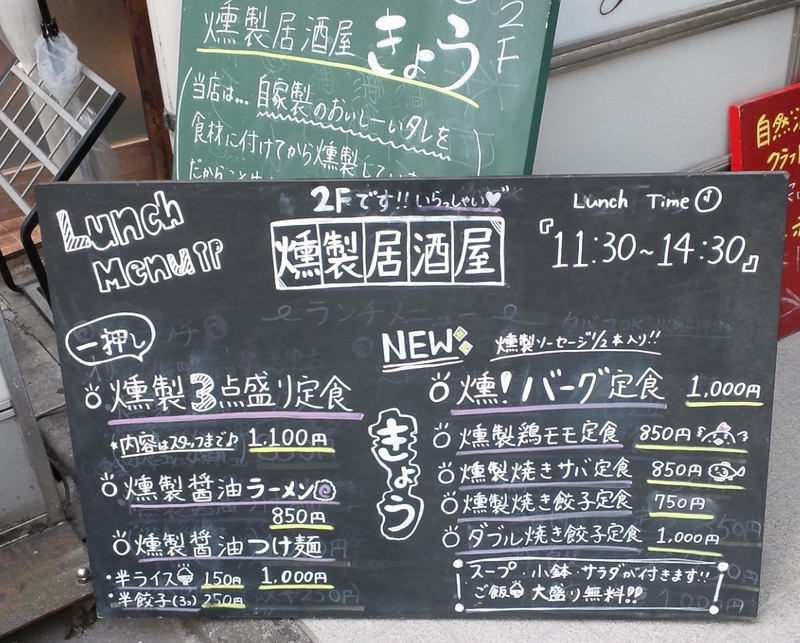 2F
燻製居酒屋 きょう
当店は… 自家製のおいしーいタレを
食材に付けてから燻製して
だから
自然
クラフト
Lunch Menu
2Fです!! いらっしゃい♡
燻製居酒屋
きょう
Lunch Time
『11:30~14:30』
一押し
燻製3点盛り定食
*内容はスタッフまで♪ 1,100円
燻製醤油ラーメン
850円
燻製醤油つけ麺
・半ライス 150円 1,000円
・半餃子(3コ) 250円
NEW 燻製ソーセージ1/2本入り!!
燻!バーグ定食 1,000円
燻製鶏モモ定食 850円
燻製焼きサバ定食 850円
燻製焼き餃子定食 750円
ダブル焼き餃子定食 1,000円
スープ・小鉢・サラダが付きます!!
ご飯 大盛り無料!!